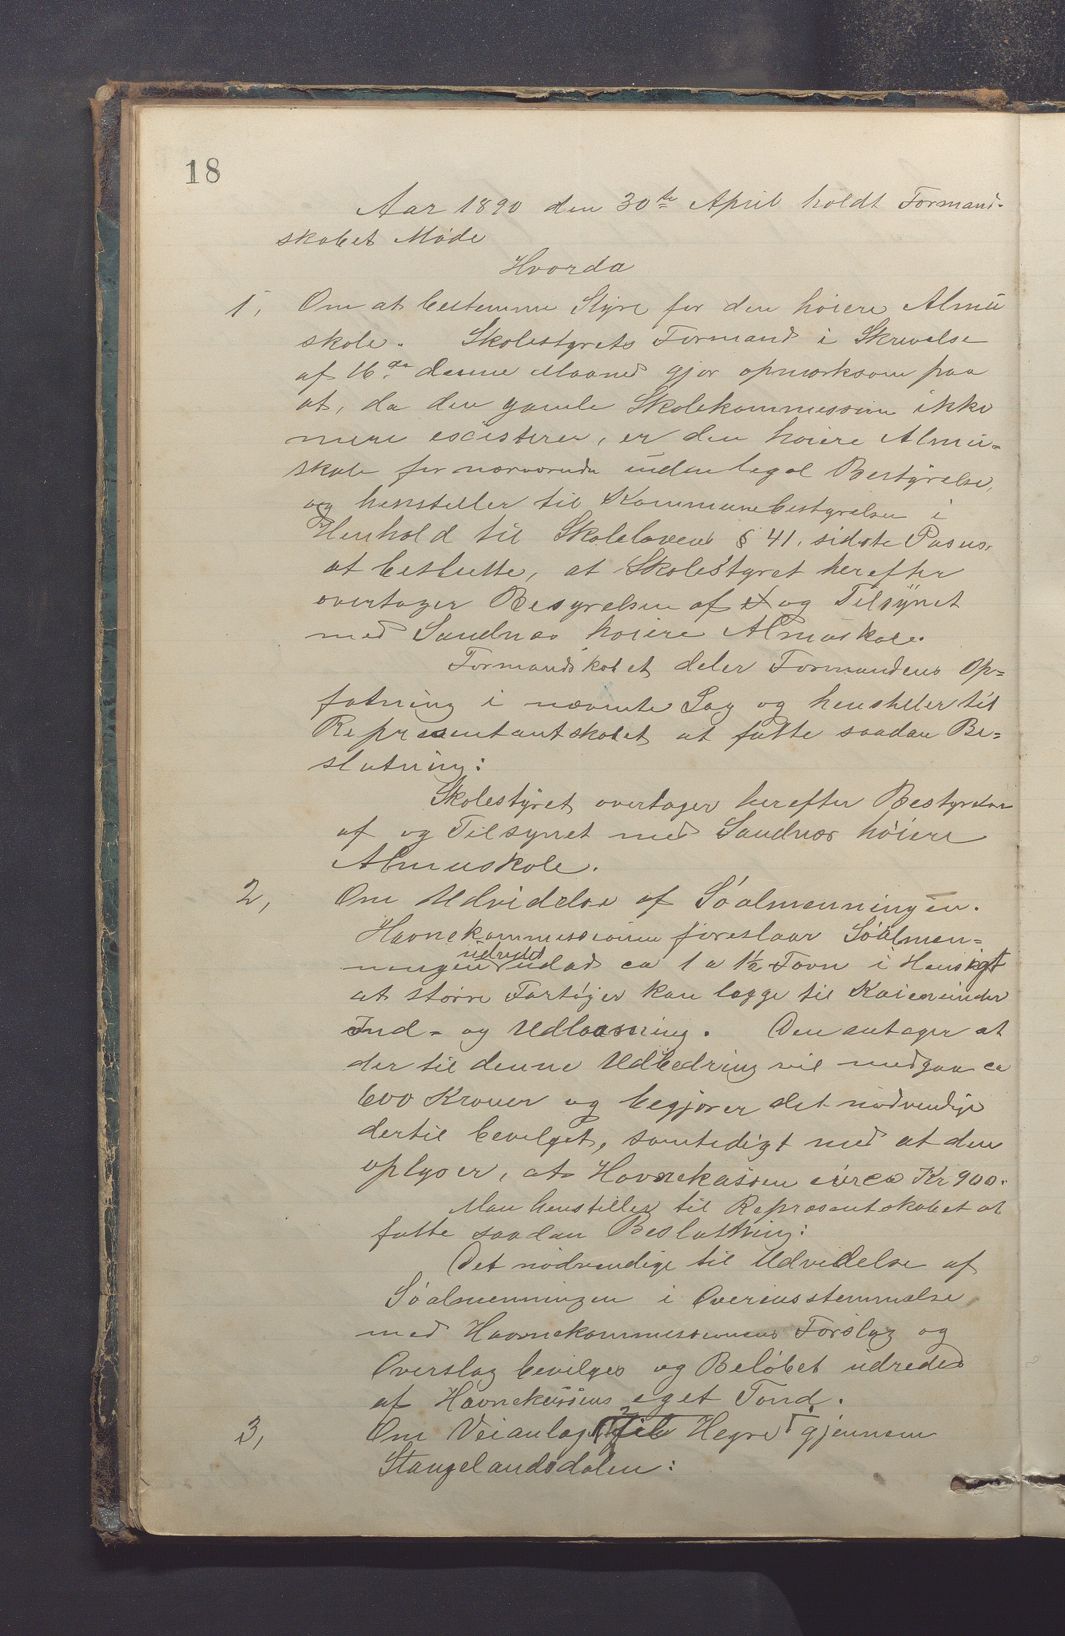 18
Aar 1890 den 30te April holdt Formand-
skabet Møde
Hvorda
1, Om at bestemme Styre for den høiere Almu
skole. Skolestyrets Formand i Skrivelse
af 16de denne Maaned gjør opmærksom paa
at, da den gamle Skolekommission ikke
mere existerer, er den høiere Almu-
skole for nærværende uden legal Bestyrelse,
og henstiller til Kommunebestyrelsen i
Henhold til Skoleloven § 41, sidste Passus
at beslutte, at Skolestyret herefter
overtager Besyrelsen af og Tilsynet
med Sandnæs høiere Almuskole.
Formandskabet deler Formandens Op-
fatning i nævnte Sag og henstiller til
Repræsentantskabet at fatte saadan Be-
slutning:
Skolestyret overtager herefter Bestyrelsen
af og Tilsynet med Sandnæs høiere
Almuskole.
2, Om Udvidelse af Søalmenningen.
Havnekommissionen foreslaar Søalmen-
ningen udvidet udad ca 1 a 1½ Favn i Hensigt
at større Fartøjer kan lægge til Kaien under
Ind- og Udlossning. Den antager at
der til denne Udbedring vil medgaa ca
600 Kroner og begjærer det nødvendige
dertil bevilget, samtidigt med at den
oplyser, at Havnekassen eier ca Kr 900.
Man henstiller til Repræsentskabet at
fatte saadan Beslutning:
Det nødvendige til Udvidelse af
Søalmenningen i Overensstemmelse
med Havnekommissionens Forslag og
Overslag bevilges og Beløbet udredes
af Havnekassens eget Fond.
3, Om Veianlæg til Hegre gjennem
Stangelandsdalen: